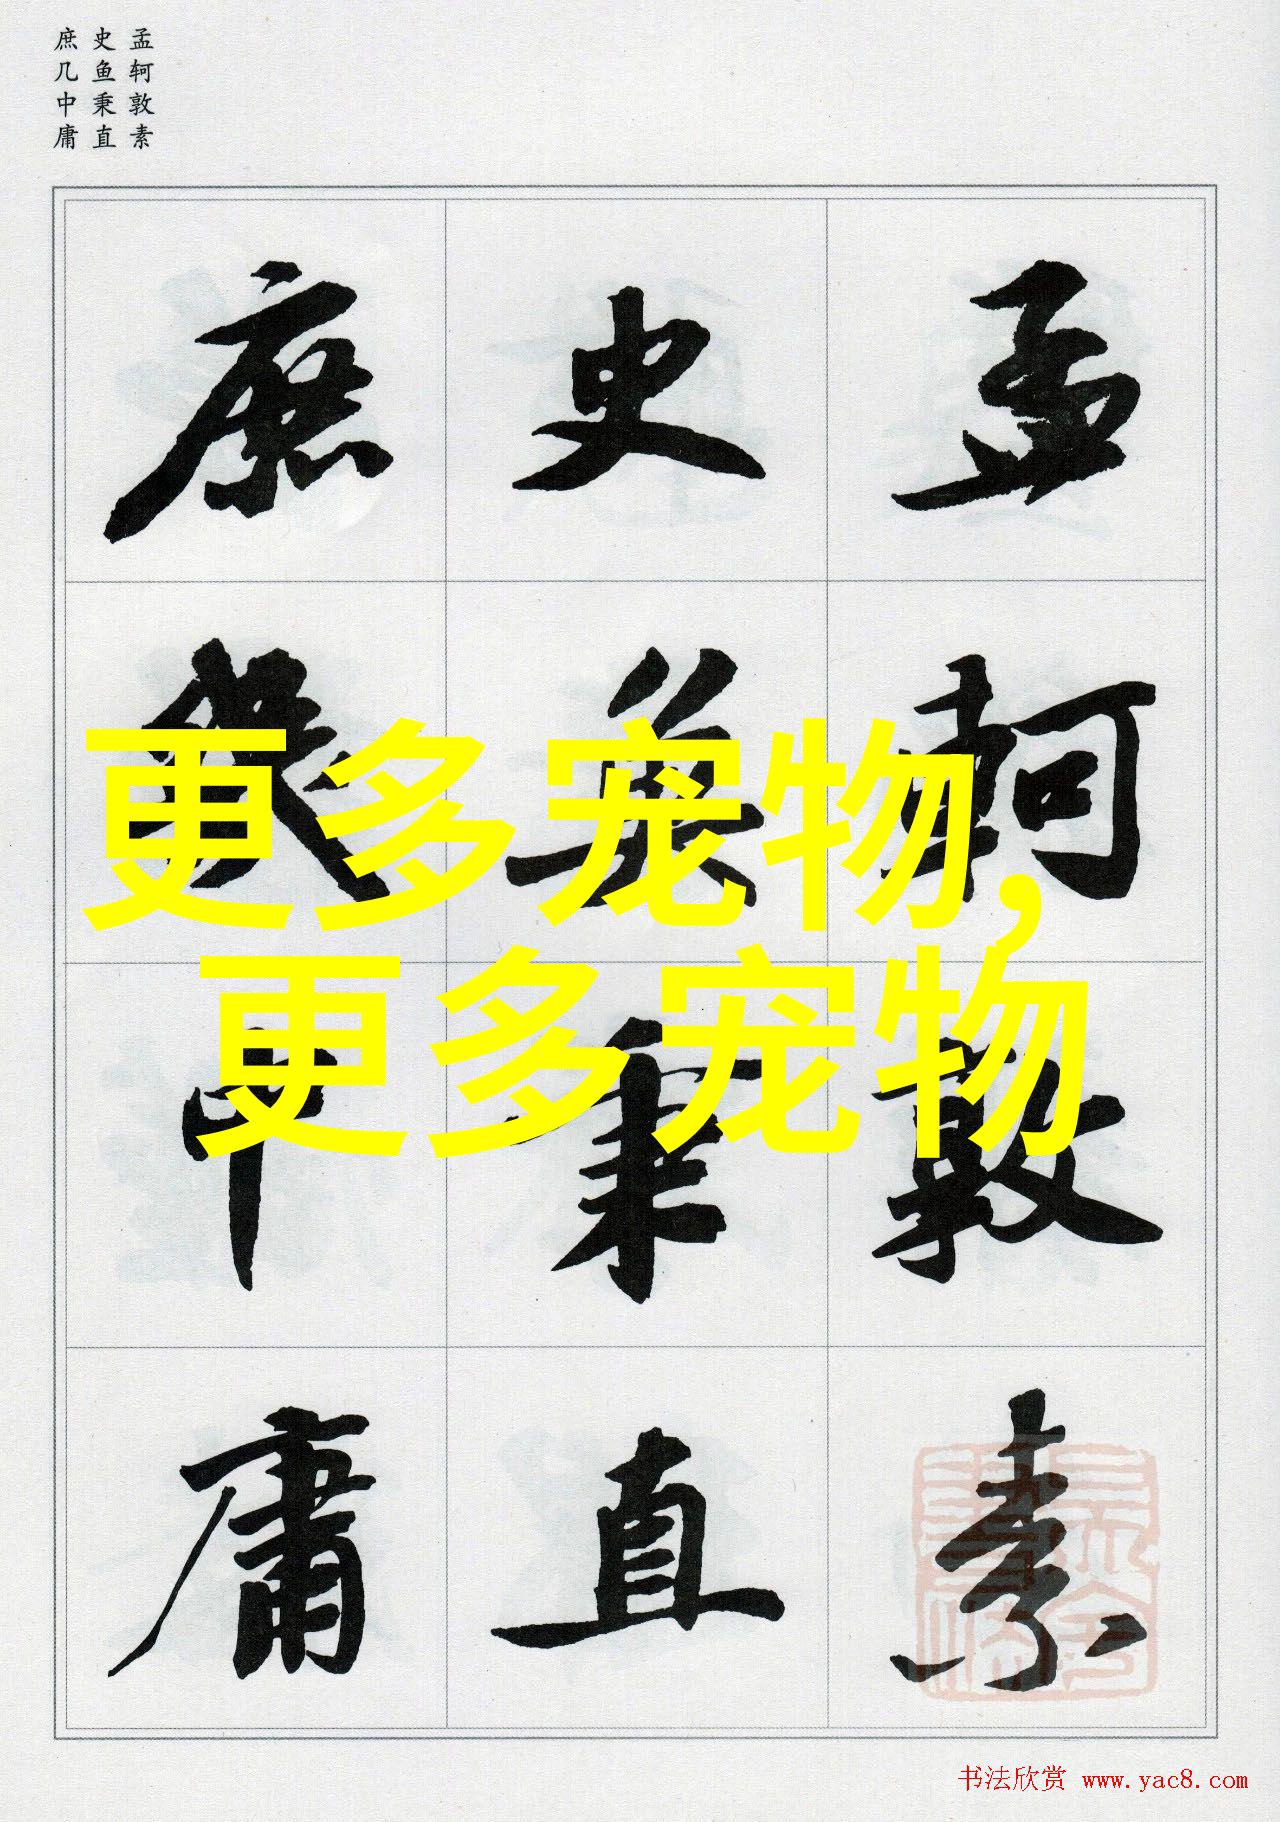 孟轲敦素
史鱼秉直
庶几中庸
孟軻敦素
史魚秉直
庶幾中庸
更多宠物,
更多宠物
书法欣赏 www.yac8.com